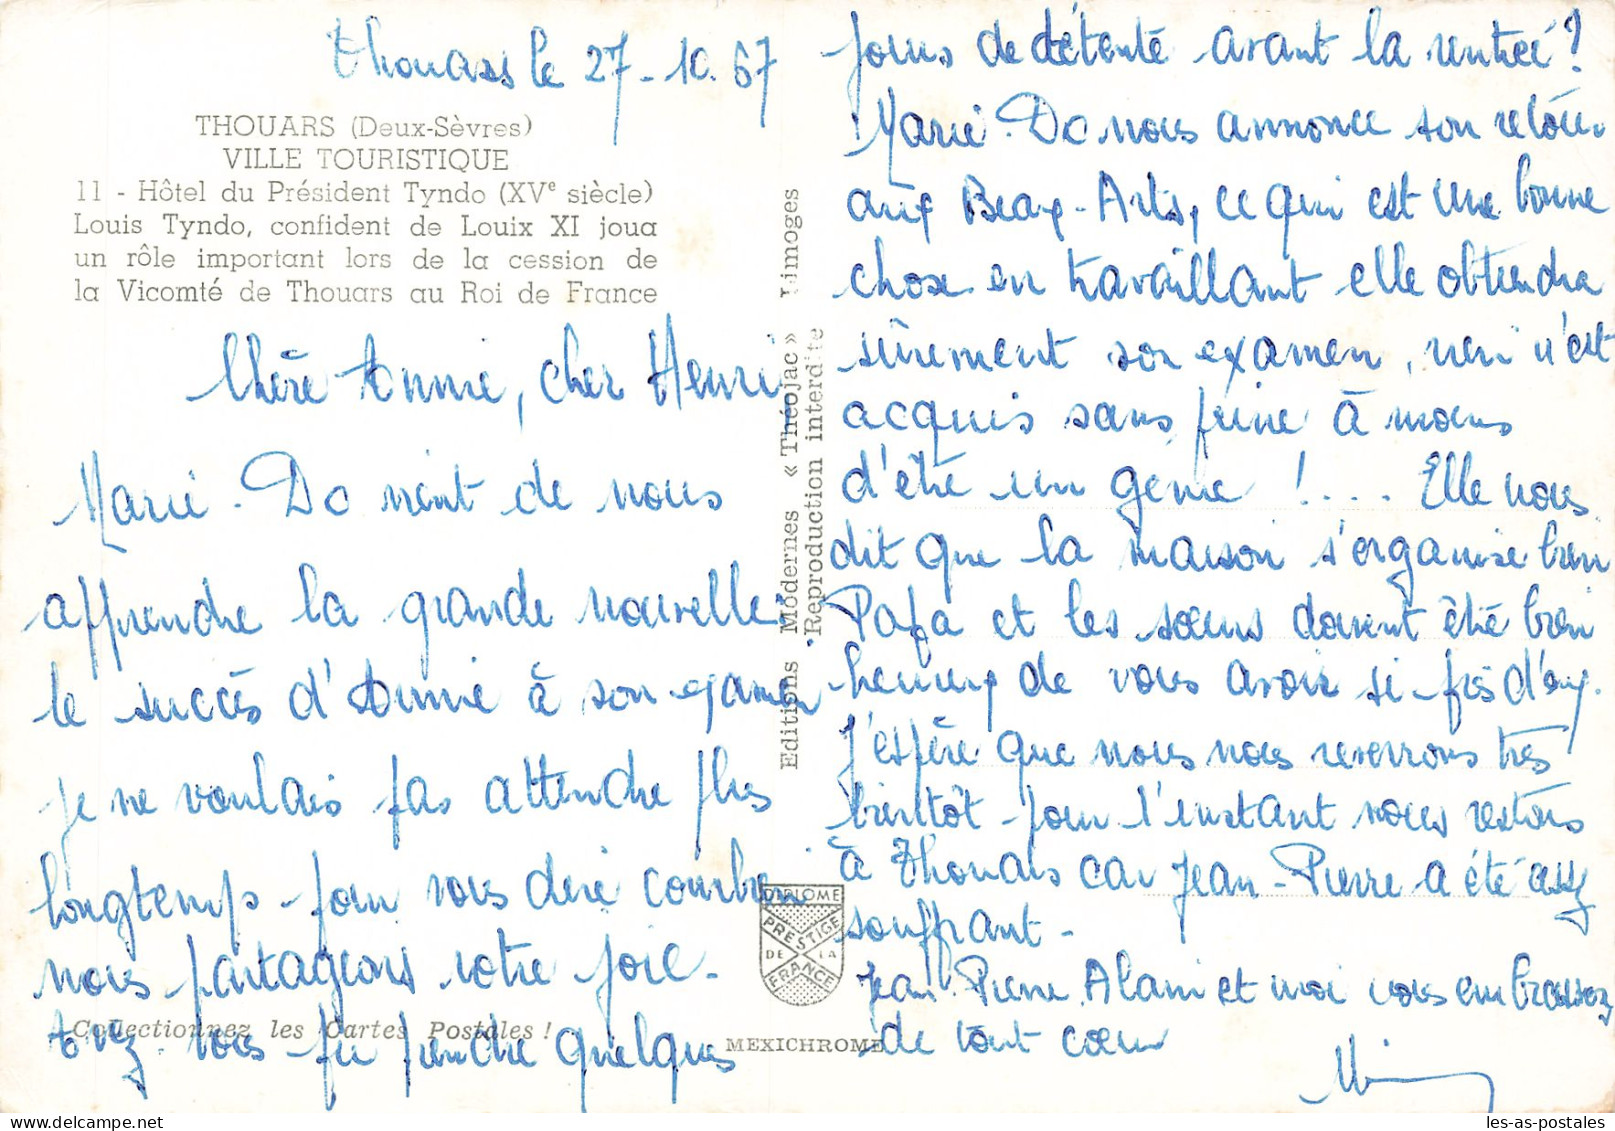 Thouars le 27-10.67
THOUARS (Deux-Sèvres)
VILLE TOURISTIQUE
11 - Hôtel du Président Tyndo (XVe siècle)
Louis Tyndo, confident de Louix XI joua
un rôle important lors de la cession de
la Vicomté de Thouars au Roi de France
Chère Annie, cher Henri
Marie-Do vient de nous
apprendre la grande nouvelle
le succès d'Annie à son examen
je ne voulais pas attendre plus
longtemps pour vous dire combien
nous partageons votre joie.
Avez-vous pu prendre quelques
Collectionnez les Cartes Postales !
Editions Modernes « Théojac » Limoges
Reproduction interdite
DIPLOME
PRESTIGE
DE LA
FRANCE
MEXICHROME
jours de détente avant la rentrée?
Marie-Do nous annonce son retour
aux Beaux-Arts, ce qui est une bonne
chose en travaillant elle obtiendra
sûrement son examen, rien n'est
acquis sans peine à moins
d'être un génie !.... Elle nous
dit que la maison s'organise bien
Papa et les soeurs doivent être bien
heureux de vous avoir si près d'eux.
J'espère que nous nous reverrons très
bientôt pour l'instant nous restons
à Thouars car Jean-Pierre a été assez
souffrant-
Jean-Pierre, Alain et moi vous embrassons
de tout coeur
les-as-postales.com